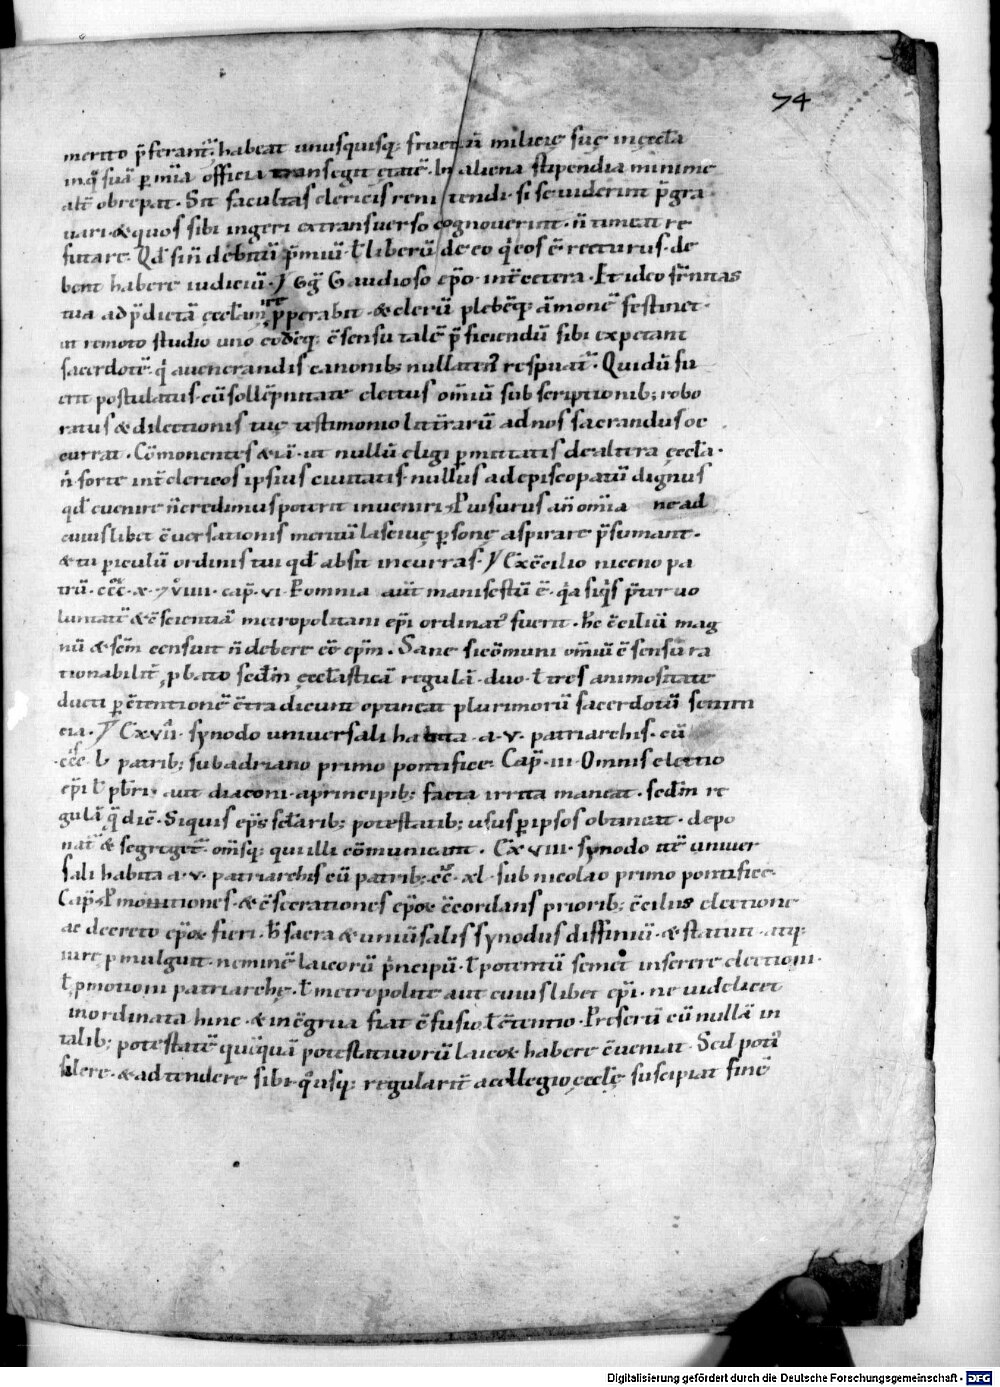 74
merito p̄ferant᷑. habeat unusquisq; fructū miliciȩ suȩ in ȩccl̄a
in q̄ suā p om̄ia officia transegit ȩtatē. In aliena stipendia minime
alt̄ obrepat. Sit facultas clericis reni tendi. si se uiderint p̄gra
uari. & quos sibi ingeri ex transuerso cognouerint. n̄ timeant re
futare. Qd̄ si n̄ debitū p̄miū. ł liberū de eo q̇ eos ē recturus. de
bent habere iudiciū. Gḡ Gaudioso ep̄o. int̄ cetera. Et ideo fr̄nitas
tua ad p̄dictā ȩccl̄am ire pperabit. & clerū plebēq; āmonē festinet.
ut remoto studio uno eodēq; c̄sensu talē p̄ficiendū sibi expetant
sacerdotē. q̇ a uenerandis canonib; nullaten᷒ respuat᷑. Qui dū fu
erit postulatus. cū sollēpnitate electus om̄iū subscriptionib; robo
ratus & dilectionis tuȩ testimonio litt̄rarū ad nos sacrandus oc
currat. Cōmonentes & iā. ut nullū eligi p mittatis de altera ȩccl̄a.
n̄ forte int̄ clericos ipsius ciuitatis. nullus ad episcopatū dignus
qd̄ euenire n̄ credimus potuerit inueniri. Puisurus an̄ om̄ia ne ad
cuiuslibet c̄uersationis meritū lasciuȩ p sonȩ aspirare p̄sumant.
& tu p iculū ordinis tui qd̄ absit incurras. Ex c̄cilio niceno pa
trū. ccc. x. 7 viiii. cap̄. vi. P omnia aut̄ manifestū ē. q̇a siq̇s p̄ter uo
luntatē & c̄scientiā metropolitani ep̄i ordinat᷒ fuerit. hc̄ c̄ciliū mag
nū & sc̄m censuit n̄ debere eē ep̄m. Sane si cōmuni om̄iū c̄sensu ra
tionabilit̄ pbato scd̄m ȩccl̄asticā regulā. duo. ł tres animositate
ducti p c̄tentionē c̄tradicunt optineat plurimorū sacerdotū senten
cia. Ex vii synodo uniuersali habita a .v. patriarchis. cū
ccc. L patrib; sub adriano primo pontifice. Cap̄. iii. Omnis electio
ep̄i ł pb̄ri. aut diaconi. a principib; facta irrita maneat. scd̄m re
gulā q̄ dic̄. Siquis ep̄s scl̄arib; potestatib; usus p ipsos obtineat. depo
nat᷑ & segreget᷑. om̄sq; qui illi cōmunicant. Ex viii. synodo itē uniuer
sali habita a .v. patriarchis cū patrib; ccc. xl. sub nicolao primo pontifice.
Cap̄. P motiones. & c̄secrationes ep̄oꝝ c̄cordans priorib; c̄ciliis electione
ac decreto ep̄oꝝ fieri. h̄ sacra & uniūsalis synodus diffiniuit. & statuit. atq;
iure p mulgauit. neminē laicorū p̄ncipū. ł potentū semet inserere electioni.
ł pmotioni patriarchȩ. ł metropolite aut cuiuslibet ep̄i. ne uidelicet
inordinata hinc. & incōgrua fiat c̄fusio ł c̄tentio. Presertī cū nullā in
talib; potestatē quēquā potestatiuorū laicoꝝ habere c̄ueniat. Sed poti᷒
silere. & adtendere sibi. q̊usq; regularit̄ a collegio ȩccl̄ȩ suscipiat finē
Digitalisierung gefördert durch die Deutsche Forschungsgemeinschaft - DFG